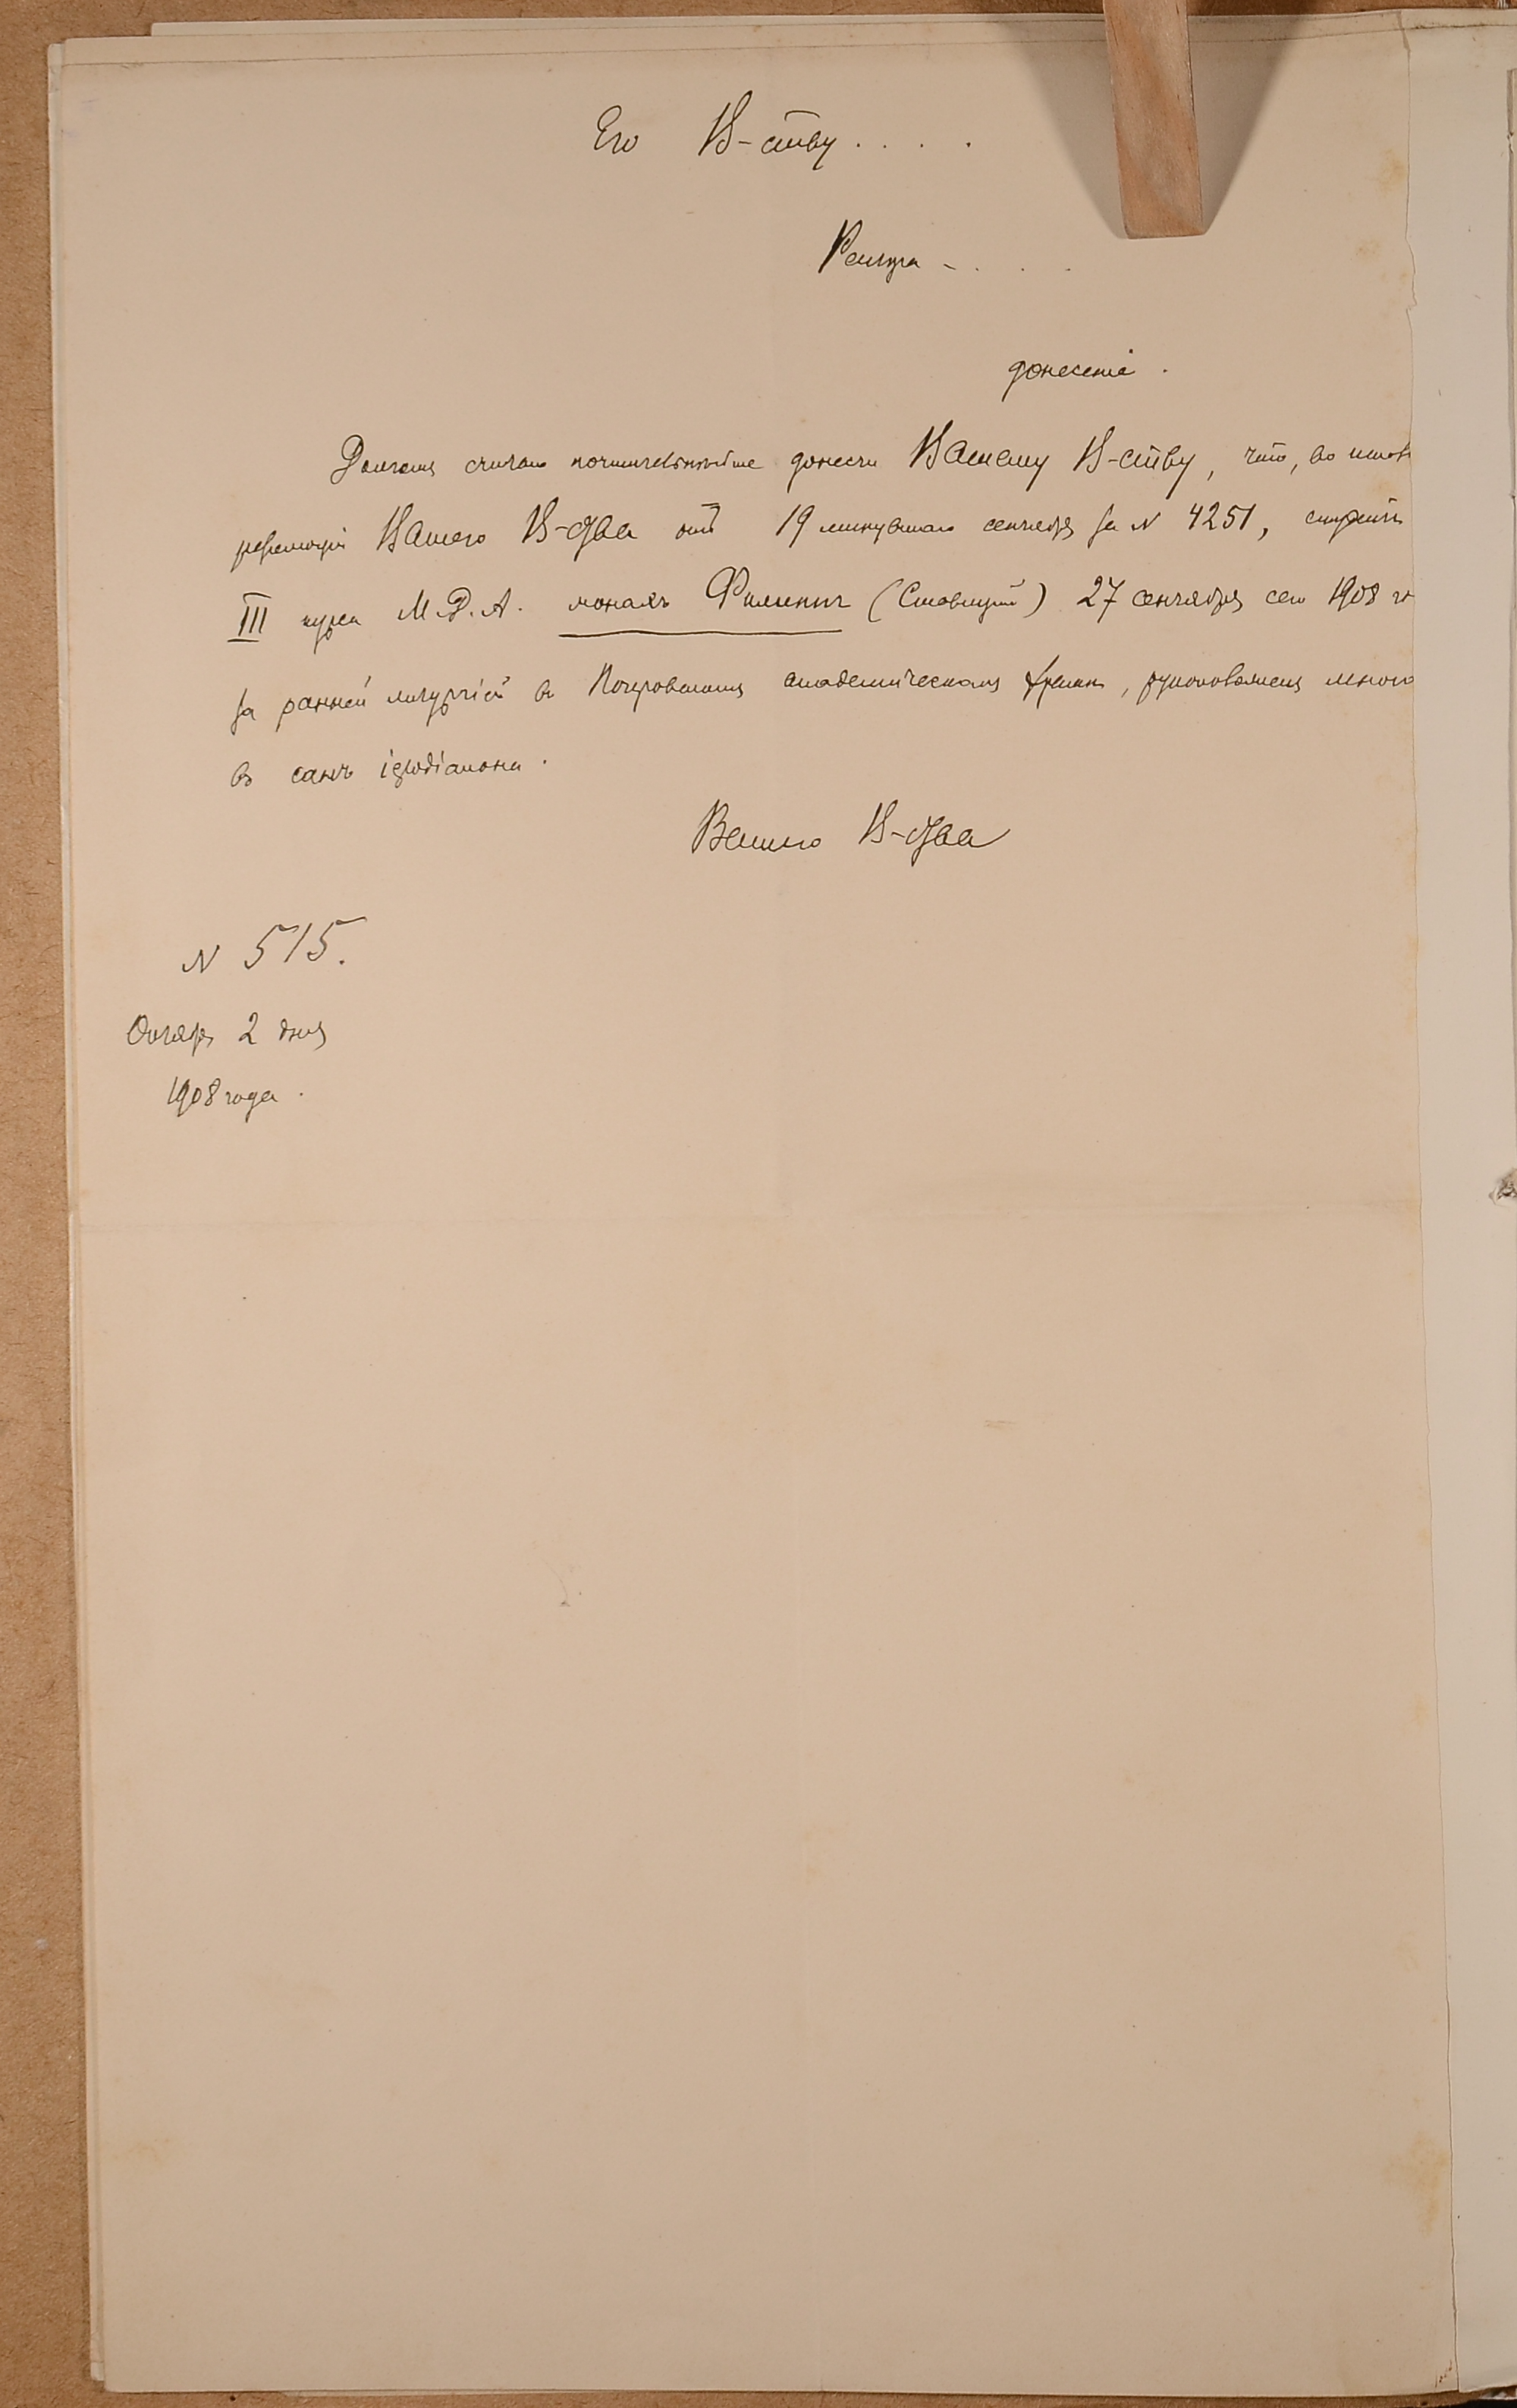 Его В-ству . . . .
Ректора - . . .
донесенiе .
Долгомъ считаю почтительнѣйше донести Вашему В-ству, что, во испол
резолюцiи Вашего В-ства отъ 19 минувшаго сентября за N 4251, студентъ
III курса М.Д.А. монахъ Филиппъ () 27 сентября сего 1908 го
за ранней литургiей въ Покровскомъ академическомъ храмѣ, рукоположенъ мною
въ санъ iеродiакона .
Вашего В-ства
N 515.
Октября 2 дня
1908 года .